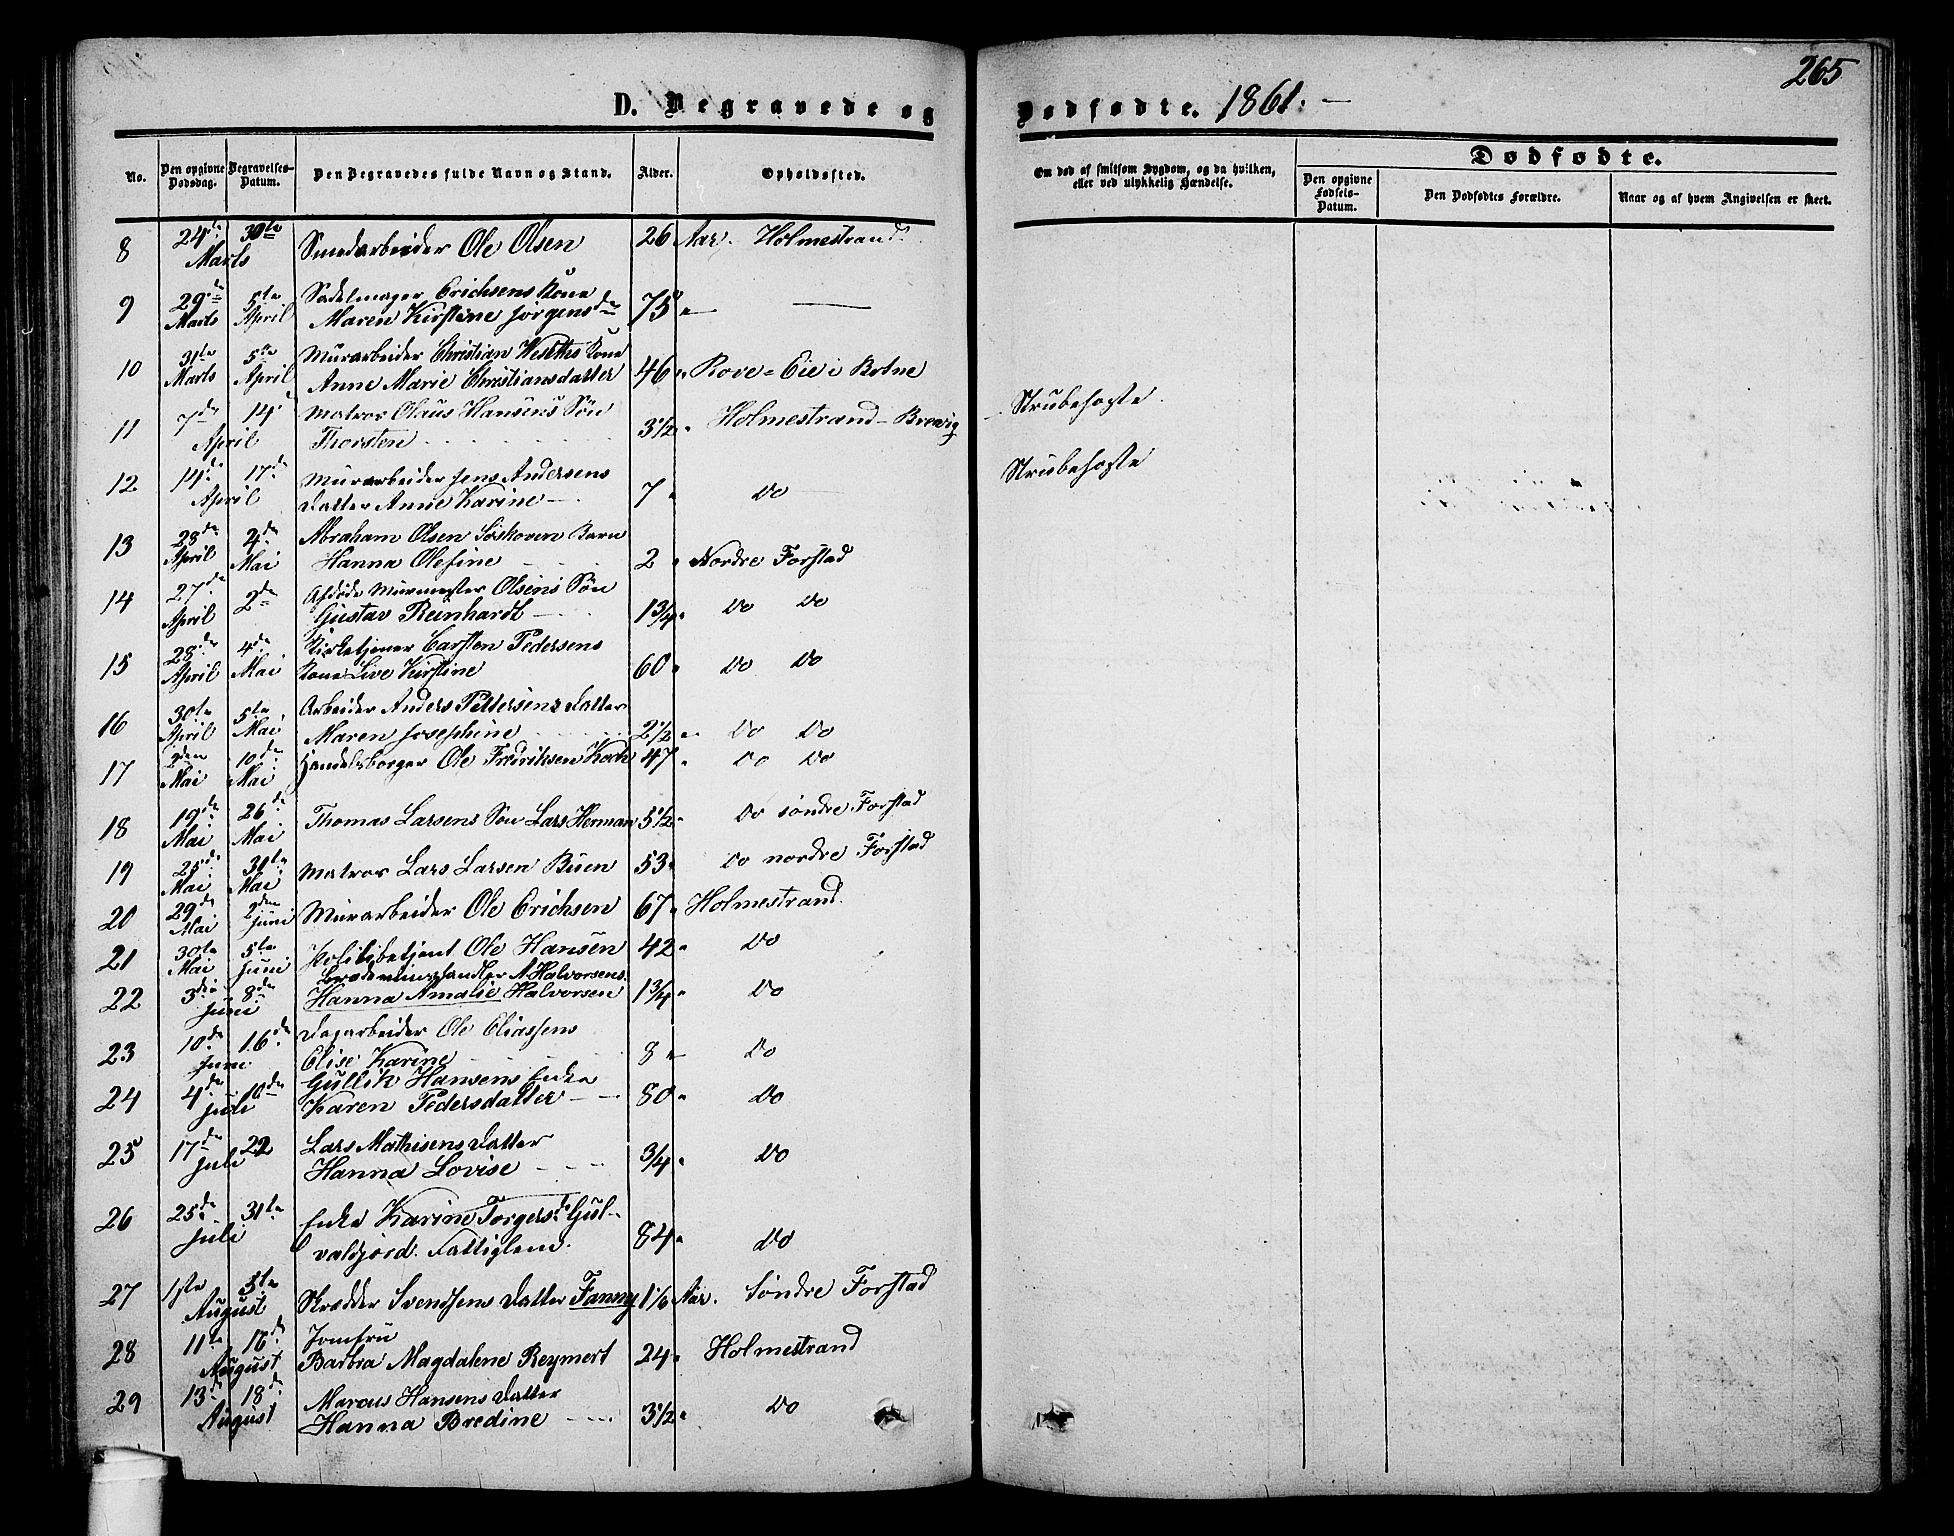 265
D. Begravede og Dødfødte. 1861. —
No. Den opgivne Dødsdag. Begravelses-Datum. Den Begravedes fulde Navn og Stand. Alder. Opholdssted. Om død af smitsom Sygdom, og da hvilken, eller ved ulykkelig Hændelse. Dødfødte.
Den opgivne Fødsels-Datum. Den Dødfødtes Forældre. Naar og af hvem Angivelsen er skeet.
8 24de 30te Marts Smedarbeider Ole Olsen 26 Aar. Holmestrand.
9 29de Marts 5te April Sadelmager Erichsens Kone
Maren Kirstine Jørgensdr 75 " — ——
10 31te Marts 5te April Murarbeider Christian Kone
Anne Marie Christiansdatter 46 " Rove-Eie i Botne
11 7de 14de April Matros Olaus Hansens Søn
Thorsten 3 1/2 " Holmestrand - Brevig Strubehoste.
12 14de 17de April Murarbeider Jens Andersens
Datter Anne Karine — 7 " Do Strubehoste
13 28de April 2de Mai Abraham Olsen Barn
Hanna Olefine 2 " Nordre Forstad
14 27de April 2de Afdøde Murmester Olsens Søn
Gustav Reinhardt — 1 3/4 " Do Do
15 28de April 4de Mai Kirketjener Carsten Pedersens
Kone Live Kirstine 60 " Do Do
16 30te April 5te Mai Arbeider Anders Pettersens Datter
Maren Josephine 2 1/2 " Do Do
17 2den Mai 10de Mai Handelsborger Ole Fredriksen Koch 47 " Do Do
18 19de Mai 26de Mai Thomas Larsens Søn Lars Herman 5 1/2 " Do søndre Forstad
19 25de Mai 31te Mai Matros Lars Larsen Buen 53 " Do nordre Forstad
20 29de Mai 2den Juni Murarbeider Ole Erichsen 67 " Holmestrand.
21 30te Mai 5te Juni Politibetjent Ole Hansen 42 " Do
22 3die 8de Juni Brædevinshandler A Halvorsens
Hanna Amalie Halvorsen 1 3/4 " Do
23 10de 16de Juni Dagarbeider Ole Eliassens
Elise Karine 8 " Do
24 4de 10de Juli Gullik Hansens Enke
Karen Pedersdatter — 80 " Do
25 17de 22 Juli Lars Mathisens Datter
Hanna Lovise 3/4 " Do
26 25de 31te Juli Enke Karine Torgersdr Gul-
valsjord. Fattiglem. 84 " Do
27 1ste 5te August Skrædder Svendsens Datter Fanny 1 1/6 Aar. Søndre Forstad
28 11te 16de August Jomfru
Barbra Magdalene Reymert 24 " Holmestrand
29 13de 18de August Marcus Hansens Datter
Hanna Bredine 3 1/2 " Do